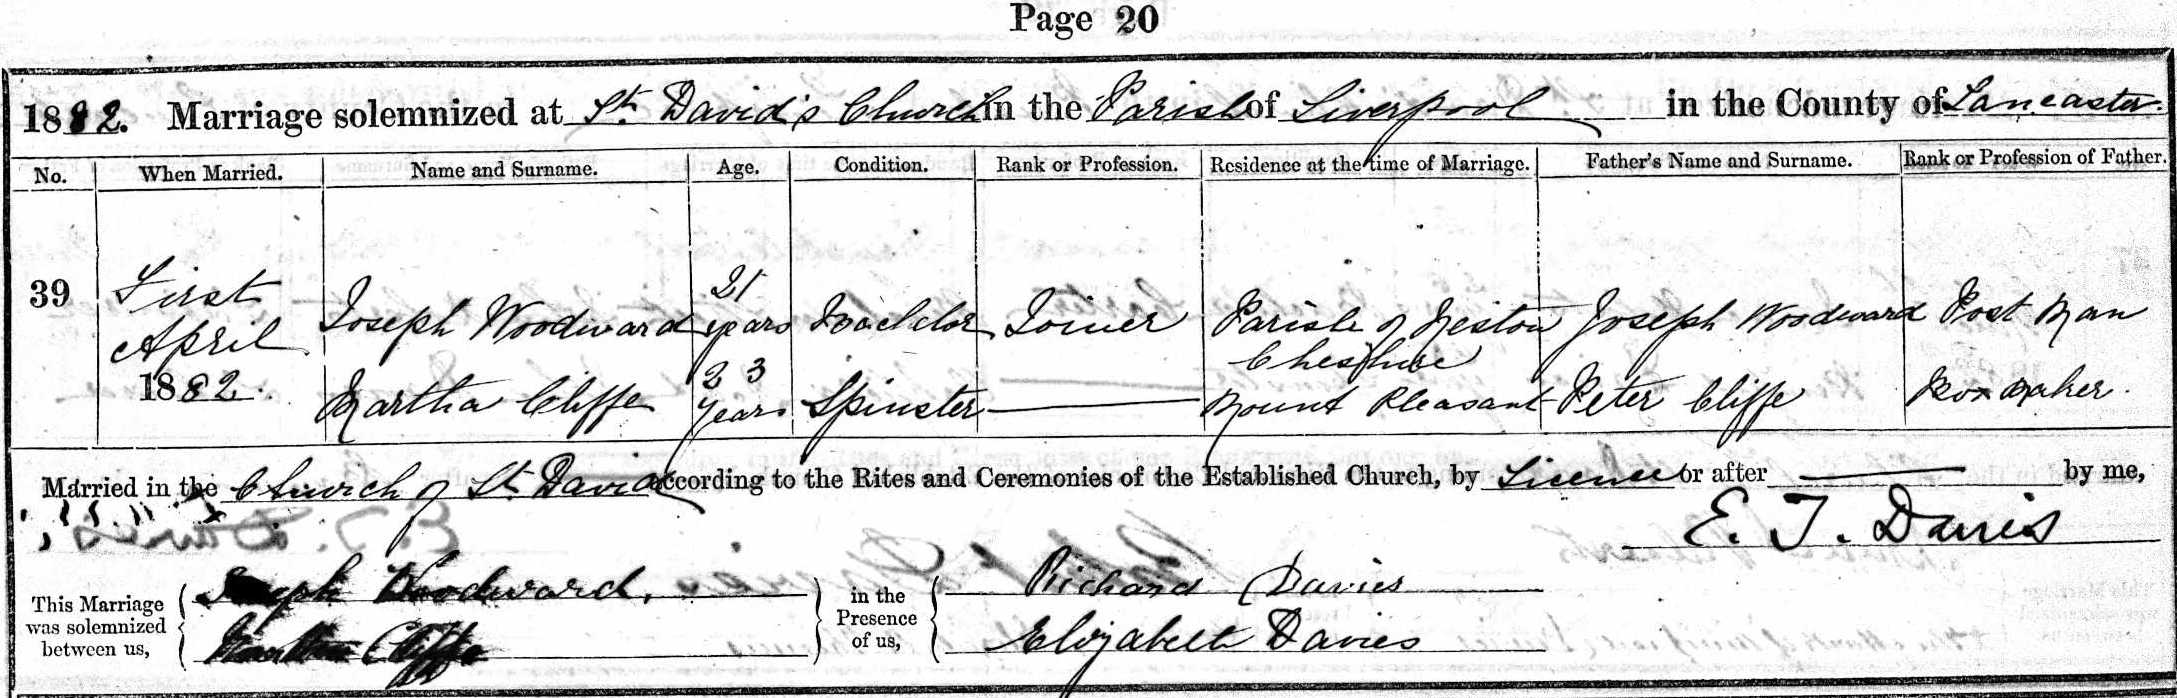 Page 20
1882. Marriage solemnized at St. David's Church in the Parish of Liverpool in the County of Lancaster.
No. When Married. Name and Surname. Age. Condition. Rank or Profession. Residence at the time of Marriage. Father's Name and Surname. Rank or Profession of Father.
39 First April 1882. Joseph Woodward 21 years Bachelor Joiner Parish of Neston Cheshire Joseph Woodward Post Man
Martha Cliffe 23 years Spinster Mount Pleasant Peter Cliffe Box Maker.
Married in the Church of St. David according to the Rites and Ceremonies of the Established Church, by Licence or after by me,
E. T. Davies
This Marriage was solemnized between us, Joseph Woodward. in the Presence of us, Richard Davies
Martha Cliffe Elizabeth Davies